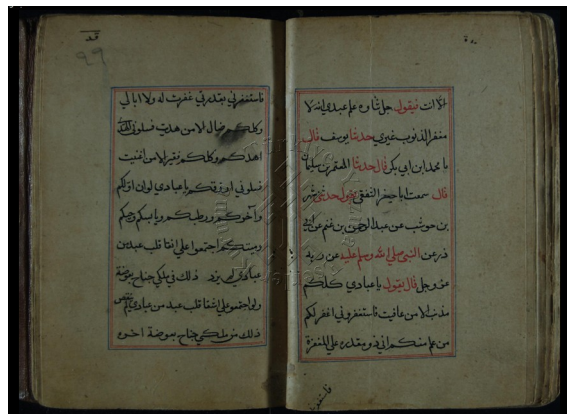 الا انت فيقول جل ثناوه علم عبدي انه لا
يغفر الذنوب غيري حدثنا يوسف قال
نا محمد ابن ابي بكر قال حدثنا المعتمر بن سليمان
قال سمعت ابا جعفر يقول حدثني شهر
بن حوشب عن عبد الرحمن بن غنم عن ابي
ذر عن النبي صلي الله وسلم عليه عن ربه
عز وجل قال يقول يا عبادي كلكم
مذنب الا من عافيت فاستغفروني اغفر لكم
من علم منكم اني ذو مقدرة علي المغفرة
فاستغفرني
قد
٩٩
فاستغفرني بقدرتي غفرت له ولا ابالي
وكلكم ضال الا من هديت فسلوني
اهدكم وكلكم فقير الا من اغنيت
فسلوني ارزقكم يا عبادي لو ان اولكم
وآخركم ورطبكم ويابسكم وحيكم
وميتكم اجتمعوا علي اتقا قلب عبد من
عبادي لم يزد ذلك في ملكي جناح بعوضة
ولو اجتمعوا علي اشقا قلب عبد من عبادي لم ينقص
ذلك من ملكي جناح بعوضة اخره